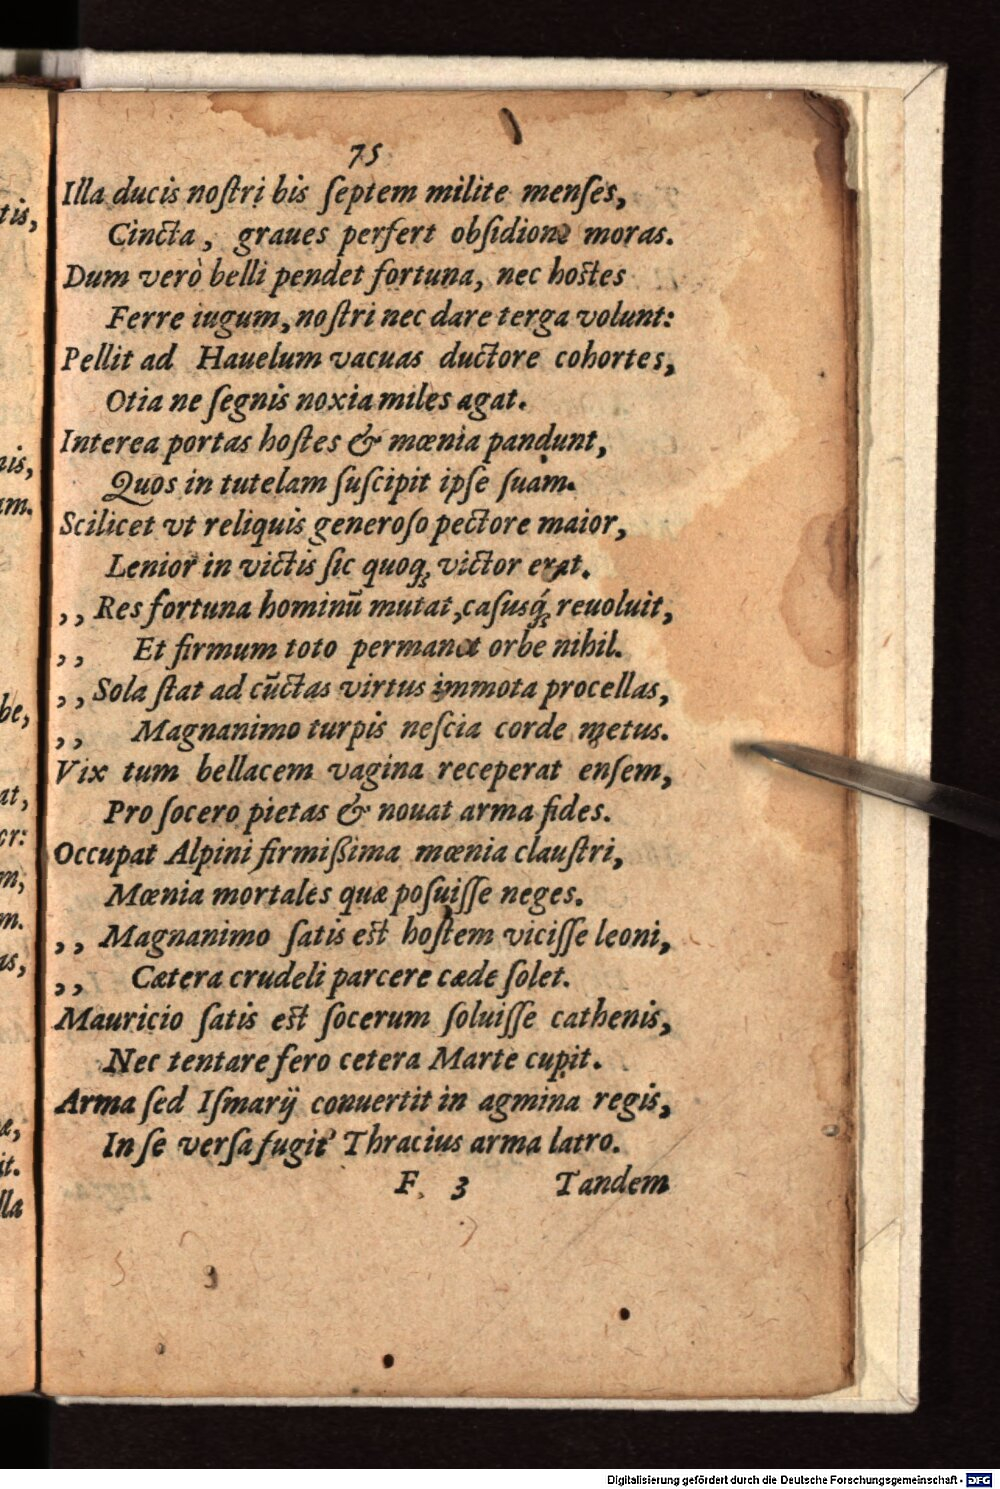 tis,
nis,
am.
be,
at,
cr:
m,
m.
as,
æ,
it.
lla
75
Illa ducis noſtri bis ſeptem milite menſes,
Cincta, graues perfert obſidione moras.
Dum verò belli pendet fortuna, nec hoſtes
Ferre iugum, noſtri nec dare terga volunt:
Pellit ad Hauelum vacuas ductore cohortes,
Otia ne ſegnis noxia miles agat.
Interea portas hoſtes & mœnia pandunt,
Quos in tutelam ſuſcipit ipſe ſuam.
Scilicet vt reliquis generoſo pectore maior,
Lenior in victis ſic quoq; victor erat.
,, Res fortuna hominū mutat, caſusq́; reuoluit,
,, Et firmum toto permanet orbe nihil.
,, Sola ſtat ad cūctas virtus immota procellas,
,, Magnanimo turpis neſcia corde metus.
Vix tum bellacem vagina receperat enſem,
Pro ſocero pietas & nouat arma fides.
Occupat Alpini firmißima mœnia clauſtri,
Mœnia mortales quæ poſuiſſe neges.
,, Magnanimo ſatis eſt hoſtem viciſſe leoni,
,, Cætera crudeli parcere cæde ſolet.
Mauricio ſatis eſt ſocerum ſoluiſſe cathenis,
Nec tentare fero cetera Marte cupit.
Arma ſed Iſmarij conuertit in agmina regis,
In ſe verſa fugit Thracius arma latro.
F 3 Tandem
Digitalisierung gefördert durch die Deutsche Forschungsgemeinschaft - DFG